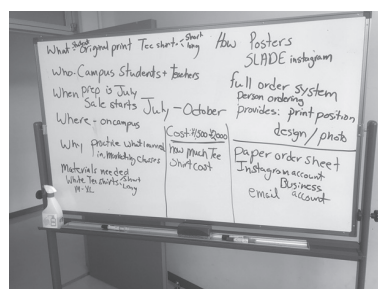 What student original print Tee shirt < short
long
Who- Campus Students + teachers
When prep is July
Sale starts July - October
Where - on campus
Why practice what learned
in Marketing Classes
Materials needed
White Tee shirts < short
long
M-XL
Cost ¥1,500 ¥2,000
how much Tee
Shirt cost
How Posters
SLADE instagram
full order system
Person ordering
provides: print position
design/photo
Paper order sheet
Instagram account
Business
email account